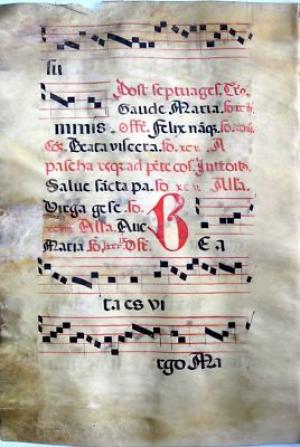 su
Post septuages. Tro.
Gaude Maria. fo. xc
mmis. Offe. Felix nāq. fo.
Co. Beata viscera. fo. xc v. A
pascha usq. ad pēte cos. Introitꝰ.
Salue sācta pa. fo. xc v. Alla.
Virga gese. fo.
Alla. Aue
Maria fo. Ofe. B E a
ta es vi
rgo Ma